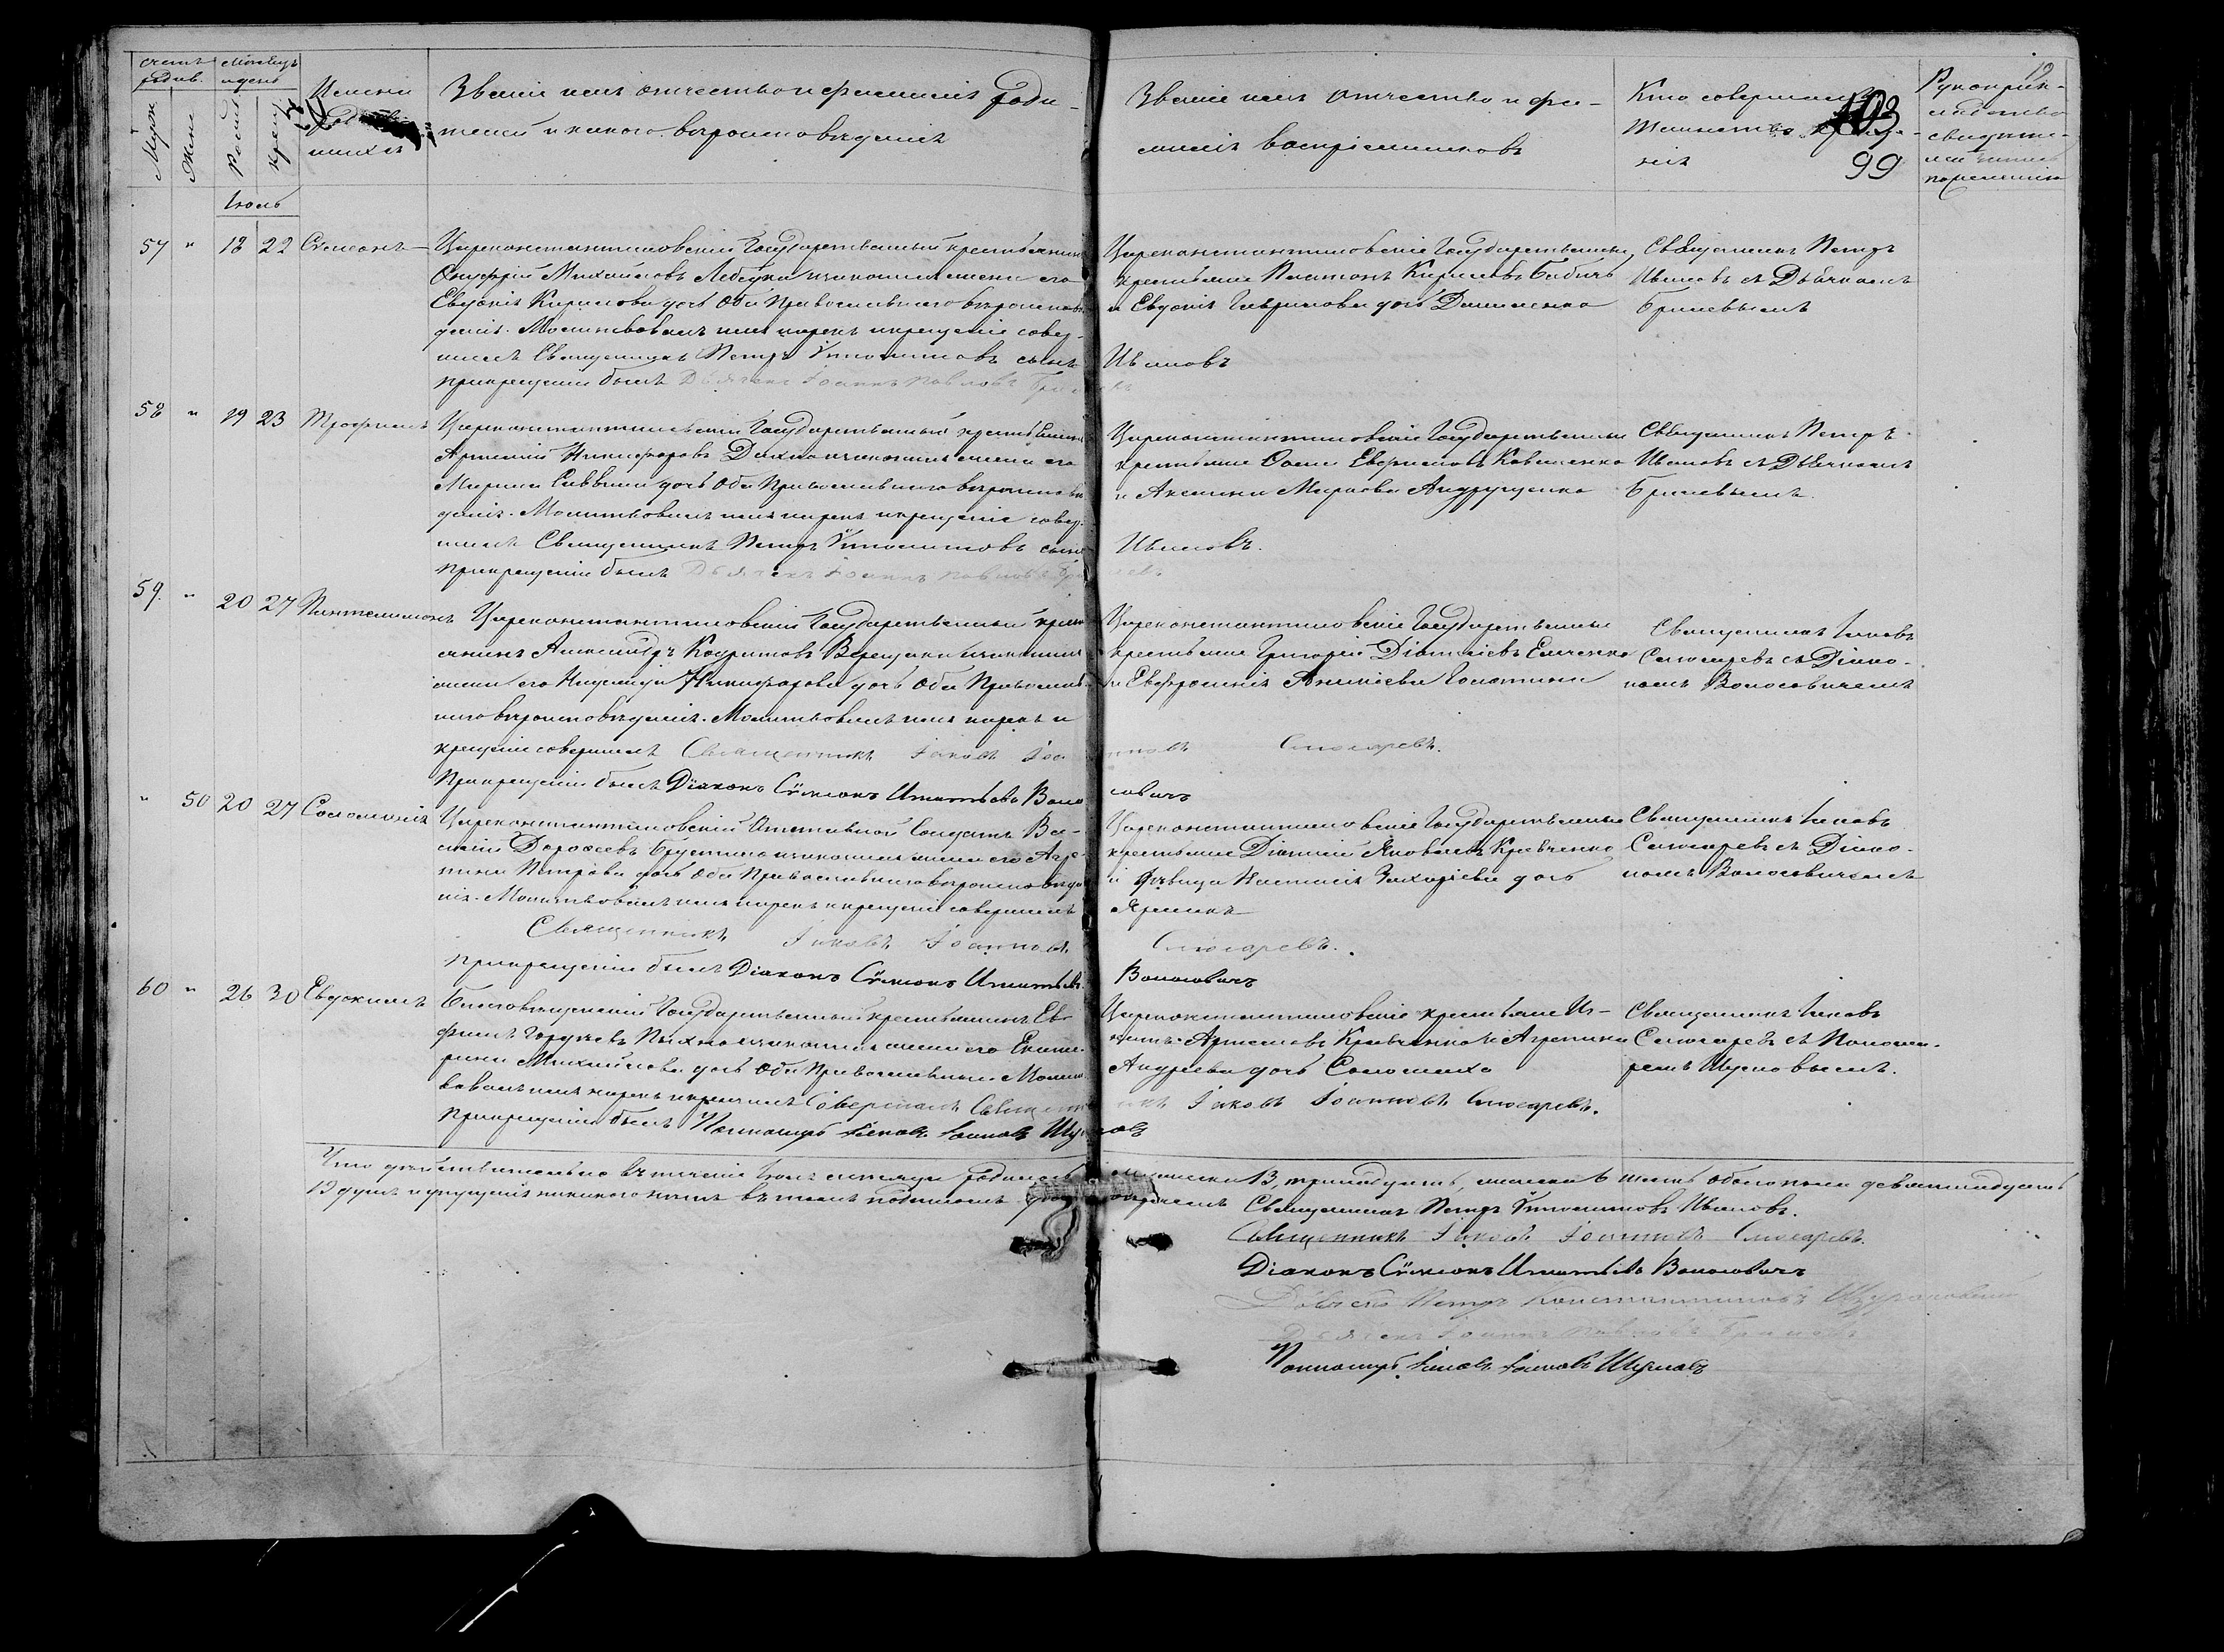 Счетъ родив.
Мѣсяцъ и день
Муж
Жене
Рожд.
Крещ.
Имена
шихся
Званіе имя отчество и фамилія роди-
телей и какого вѣроисповѣданія
Званіе имя отчество и фа-
милія воспріемниковъ
Кто совершалъ
таинство креще-
нія
103
99
19
Рукоприк-
ладство
свидѣте-
лей записи
по желанію
Іюль
57 " 18 22 Симеонъ
Цареконстантиновскій Государственный крестьянинъ
Онуфрій Михайловъ и законная жена его
Евдокія Кирилова дочь оба Православнаго вѣроисповѣ-
данія. Молитвовалъ имя нарекъ и крещеніе совер-
шилъ Священникъ Петръ сынъ Ивановъ
При крещеніи былъ Дьячекъ Іоаннъ Павловъ
Цареконстантиновскіе Государственные
крестьяне Платонъ Кириловъ Бабичъ
и Евдокія Гаврилова дочь Даниленко
Священникъ Петръ
Ивановъ съ Дьячкомъ
58 " 19 23 Трофимъ
Цареконстантиновскій Государственный крестьянинъ
Артемій Никифоровъ и законная жена его
Марина Саввина дочь оба Православнаго вѣроисповѣ-
данія. Молитвовалъ имя нарекъ и крещеніе совер-
шилъ Священникъ Петръ сынъ Ивановъ.
При крещеніи былъ Дьячекъ Іоаннъ Павловъ
Цареконстантиновскіе Государственные
крестьяне Евфимовъ Коваленко
и Аксинья Маркова Андрущенко
Священникъ Петръ
Ивановъ съ Дьячкомъ
59. " 20 27 Пантелимонъ
Цареконстантиновскій Государственный кресть-
янинъ Александръ и законная
жена его Надежда Никифорова дочь оба Православ-
наго вѣроисповѣданія. Молитвовалъ имя нарекъ и
крещеніе совершилъ Священникъ Іаковъ Іоанновъ Слюсаревъ.
При крещеніи былъ Діаконъ Сѵмеонъ Игнатьевъ Волосовичъ
Цареконстантиновскіе Государственные
крестьяне Григорій Діонисіевъ
и Евфросинія
Священникъ Іаковъ
Слюсаревъ съ Діако-
номъ Волосовичемъ
" 50 20 27 Соломонія
Цареконстантиновскій Отставной Солдатъ Ва-
силій Дорофеевъ и законная жена его Агри-
пина Петрова дочь оба Православнаго вѣроисповѣда-
нія. Молитвовалъ имя нарекъ и крещеніе совершилъ
Священникъ Іаковъ Іоанновъ Слюсаревъ.
При крещеніи былъ Діаконъ Сѵмеонъ Игнатьевъ Волосовичъ
Цареконстантиновскіе Государственные
крестьяне Діонисій Яковлевъ Кравченко
и дѣвица Настасія Захаріева дочь
Священникъ Іаковъ
Слюсаревъ съ Діако-
номъ Волосовичемъ
60 " 26 30 Евдокимъ
Благовѣщенскій Государственный крестьянинъ Ев-
фимъ и законная жена его Екате-
рина Михайлова дочь оба Православные. Молит-
вовалъ имя нарекъ и крещеніе Совершилъ Священникъ Іаковъ Іоанновъ Слюсаревъ.
При крещеніи былъ Пономарь Іаковъ Іоанновъ Шумовъ
Цареконстантиновскіе крестьяне Иг-
натъ Артемовъ Кравченко и Агрипина
Андреева дочь
Священникъ Іаковъ
Слюсаревъ съ Понома-
ремъ Шумовымъ.
Что дѣйствительно въ теченіи Іюля мѣсяца родилось мужеска 13, тринадцать, женска 6 шесть обоего пола девятнадцать
19 душъ и упущенія никакого нѣтъ въ томъ
Священникъ Петръ Ивановъ.
Священникъ Іаковъ Іоанновъ Слюсаревъ.
Діаконъ Сѵмеонъ Игнатьевъ Волосовичъ
Дьячекъ Петръ Константиновъ
Дьячекъ Іоаннъ Павловъ
Пономарь Іаковъ Іоанновъ Шумовъ